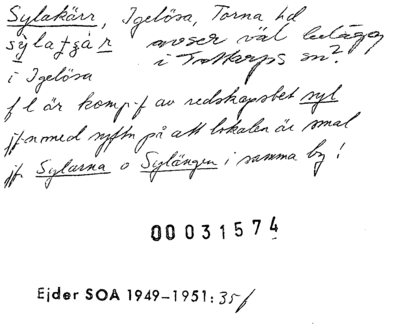 Sylakärr, Igelösa, Torna hd
syla-tjär avser väl beläg
i Igelösa i Torkarps sn?
f l är komp-f av redskapsbet syl
jfn med syftn på att lokalen är smal
jfr Sylarna o Sylängen i samma by!
00031574
Ejder SOA 1949-1951: 35 f